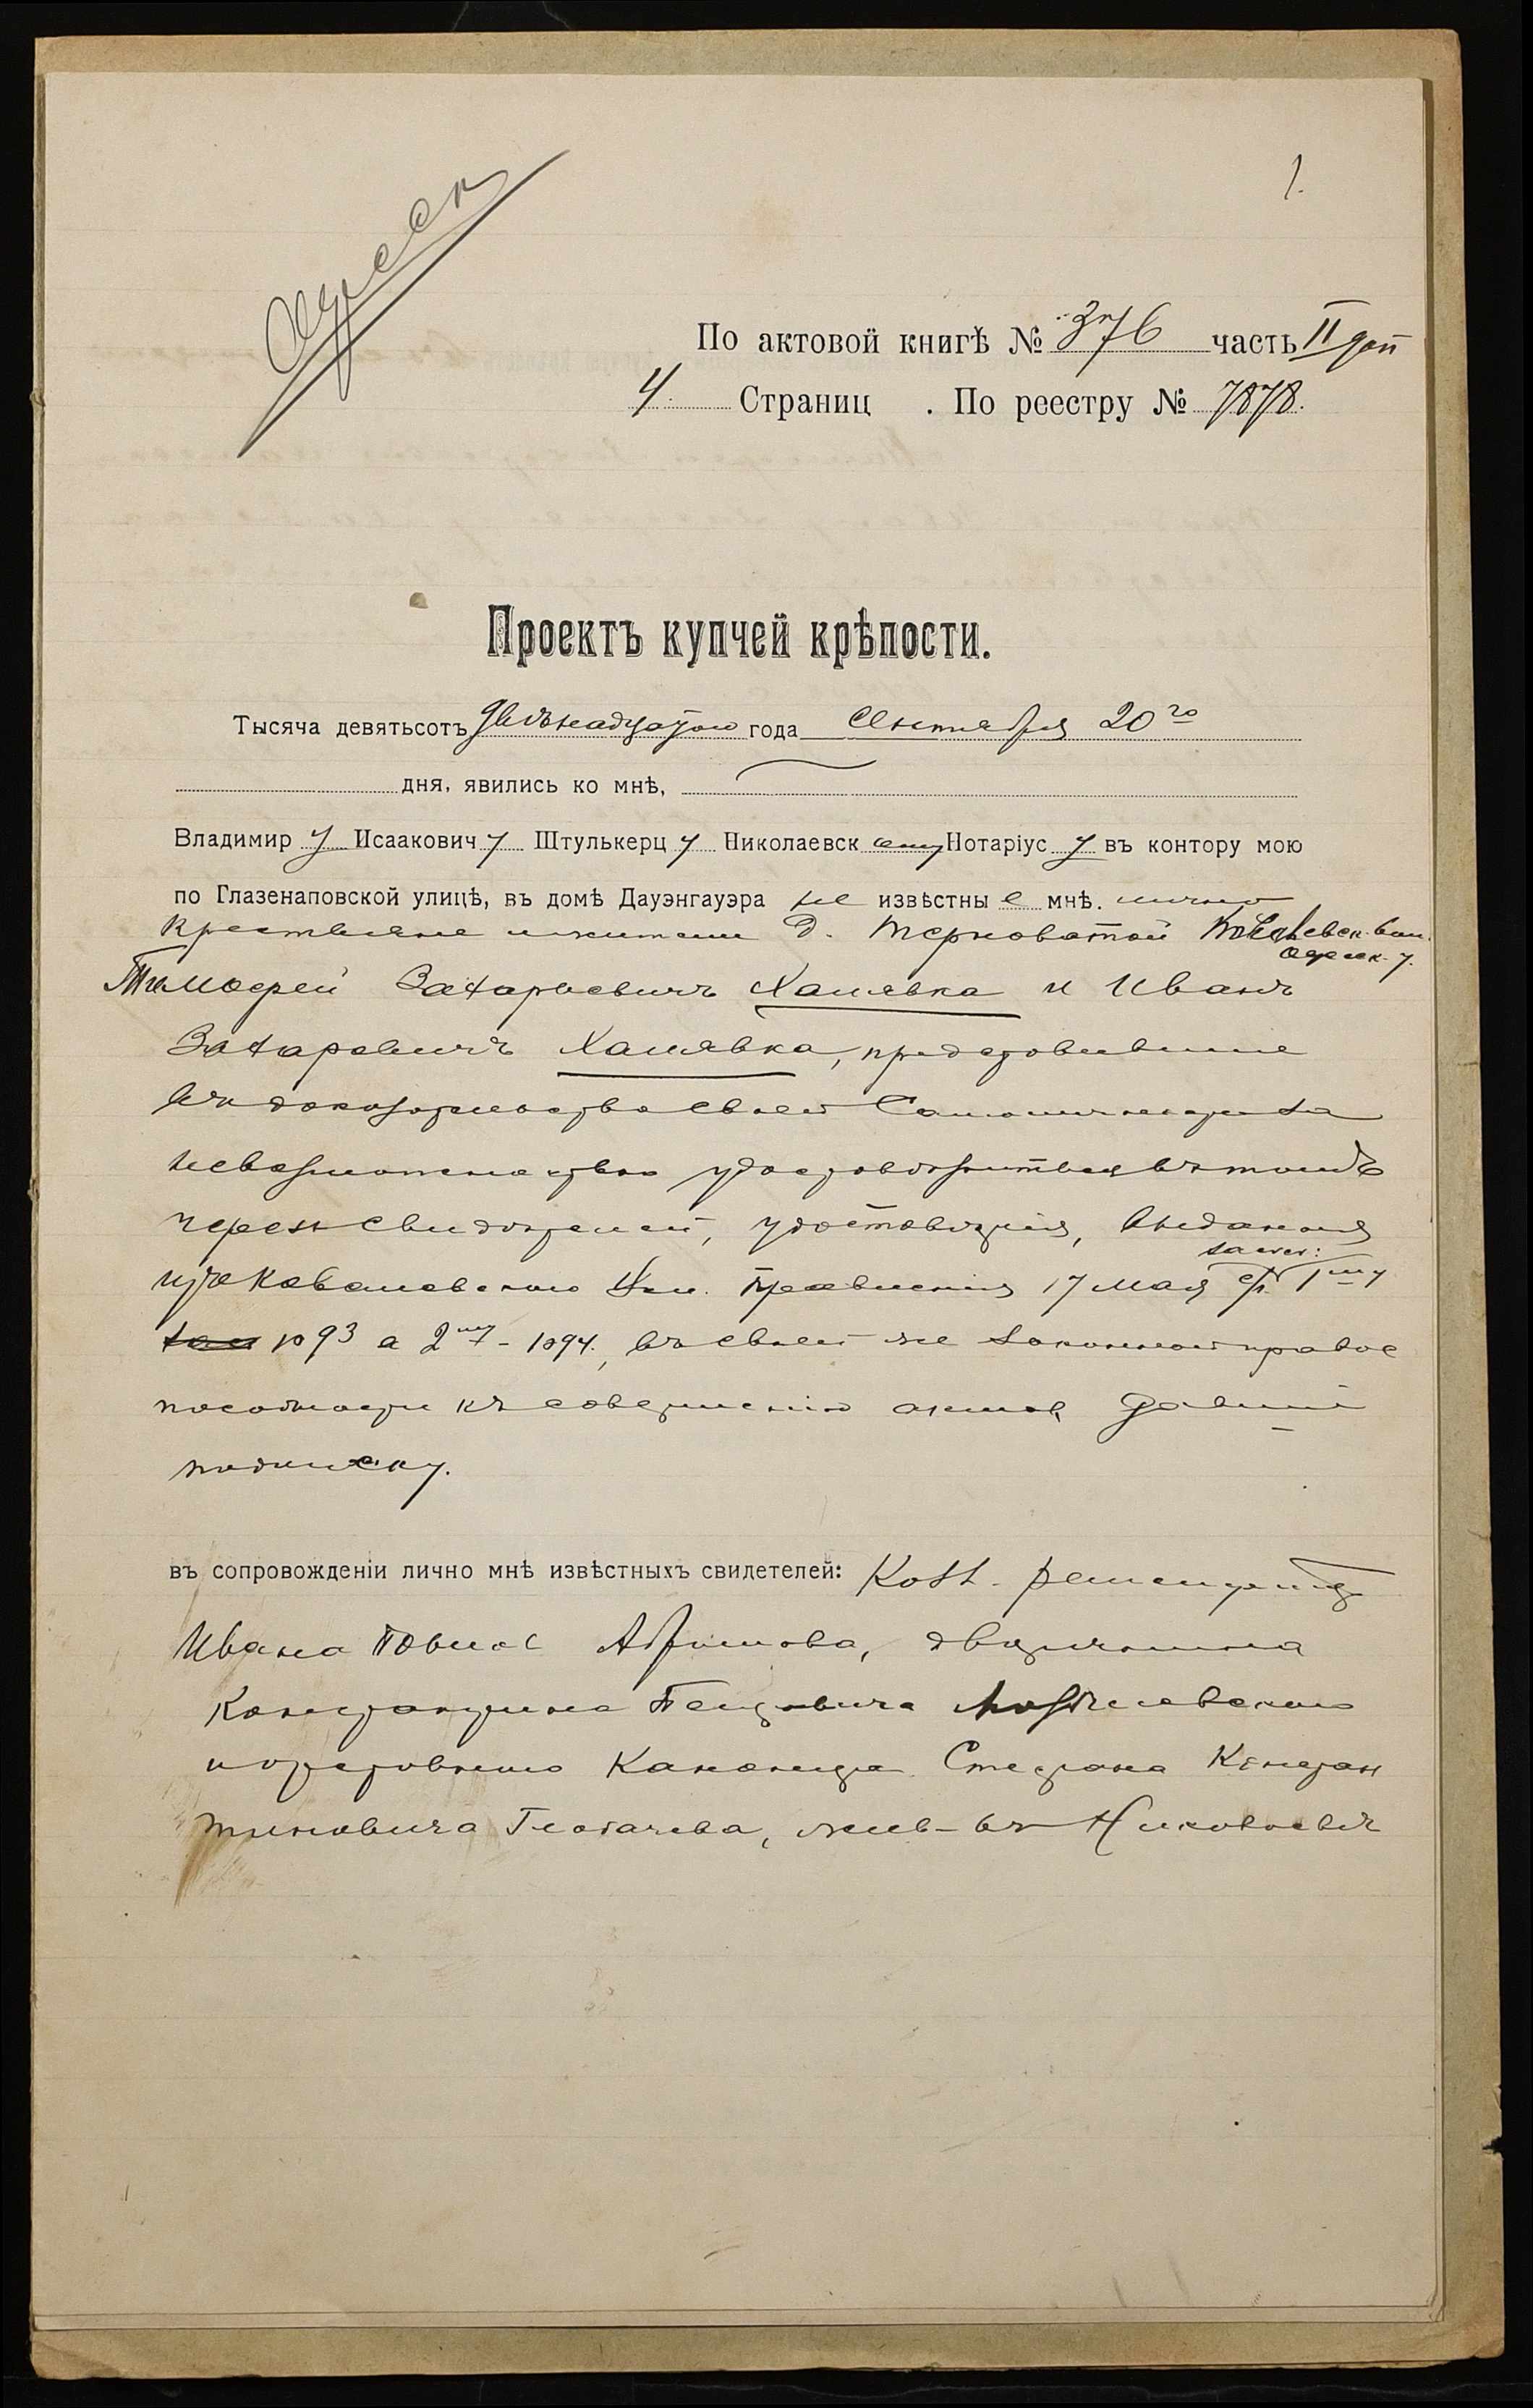 1.
Одесск
По актовой книгѣ № 376 часть II доп
4. Страниц . По реестру № 7878.
Проектъ купчей крѣпости.
Тысяча девятьсотъ двѣнадцатаго года Сентября 20го
дня, явились ко мнѣ,
Владимир у Исаакович у Штулькерц у Николаевск ому Нотаріус у въ контору мою
по Глазенаповской улицѣ, въ домѣ Дауэнгауэра не извѣстны е мнѣ. лично
крестьяне и жители д. Терноватой Ковалевск. вол.
Одесск. у.
Тимофей Захарьевичъ Халявка и Иванъ
Захаровичъ Халявка, представившие
въ доказательство своей Самоличности за
невозможностью удостовѣриться въ томъ
черезъ свидѣтелей, удостовѣрения, выданныя
изъ Ковалевскаго Вол. Правления 17 Мая с/г. 1му
за № 93 а 2му - 1094., въ своей же законной право
способности къ совершению актовъ давшие
подписку.
въ сопровожденіи лично мнѣ извѣстныхъ свидетелей:
Ивана Абрамова, дворянина
Константина
и Стефана Констан
тиновича жив- въ Николаевѣ